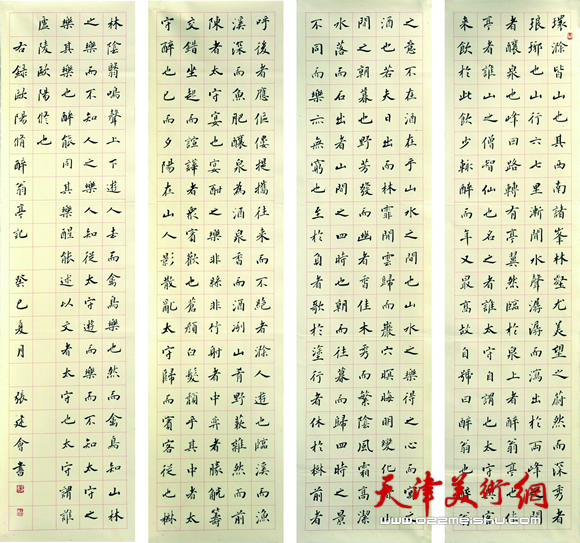 環滁皆山也其西南諸峯林壑尤美望之蔚然而深秀者
琅琊也山行六七里漸聞水聲潺潺而瀉出於兩峰之間
者釀泉也峰回路轉有亭翼然臨於泉上者醉翁亭也作
亭者誰山之僧智仙也名之者誰太守自謂也太守與客
來飲於此飲少輒醉而年又最高故自號曰醉翁也醉翁
之意不在酒在乎山水之間也山水之樂得之心而寓之
酒也若夫日出而林霏開雲歸而巖穴暝晦明變化者山
間之朝暮也野芳發而幽香佳木秀而繁陰風霜高潔
水落而石出者山間之四時也朝而往暮而歸四時之景
不同而樂亦無窮也至於負者歌於塗行者休於樹前者
呼後者應傴僂提攜往來而不絕者滁人遊也臨溪而漁
溪深而魚肥釀泉為酒泉香而酒洌山肴野蔌雜然而前
陳者太守宴也宴酣之樂非絲非竹射者中弈者勝觥籌
交錯坐起而諠譁者眾賓歡也蒼顏白髮頹乎其中者太
守醉也已而夕陽在山人影散亂太守歸而賓客從也樹
林陰翳鳴聲上下遊人去而禽鳥樂也然而禽鳥知山林
之樂而不知人之樂人知從太守遊而樂而不知太守之
樂其樂也醉能同其樂醒能述以文者太守也太守謂誰
廬陵歐陽修也
右錄歐陽脩醉翁亭記 癸巳夏月 張建會書
天津美術網
www.022meishu.com